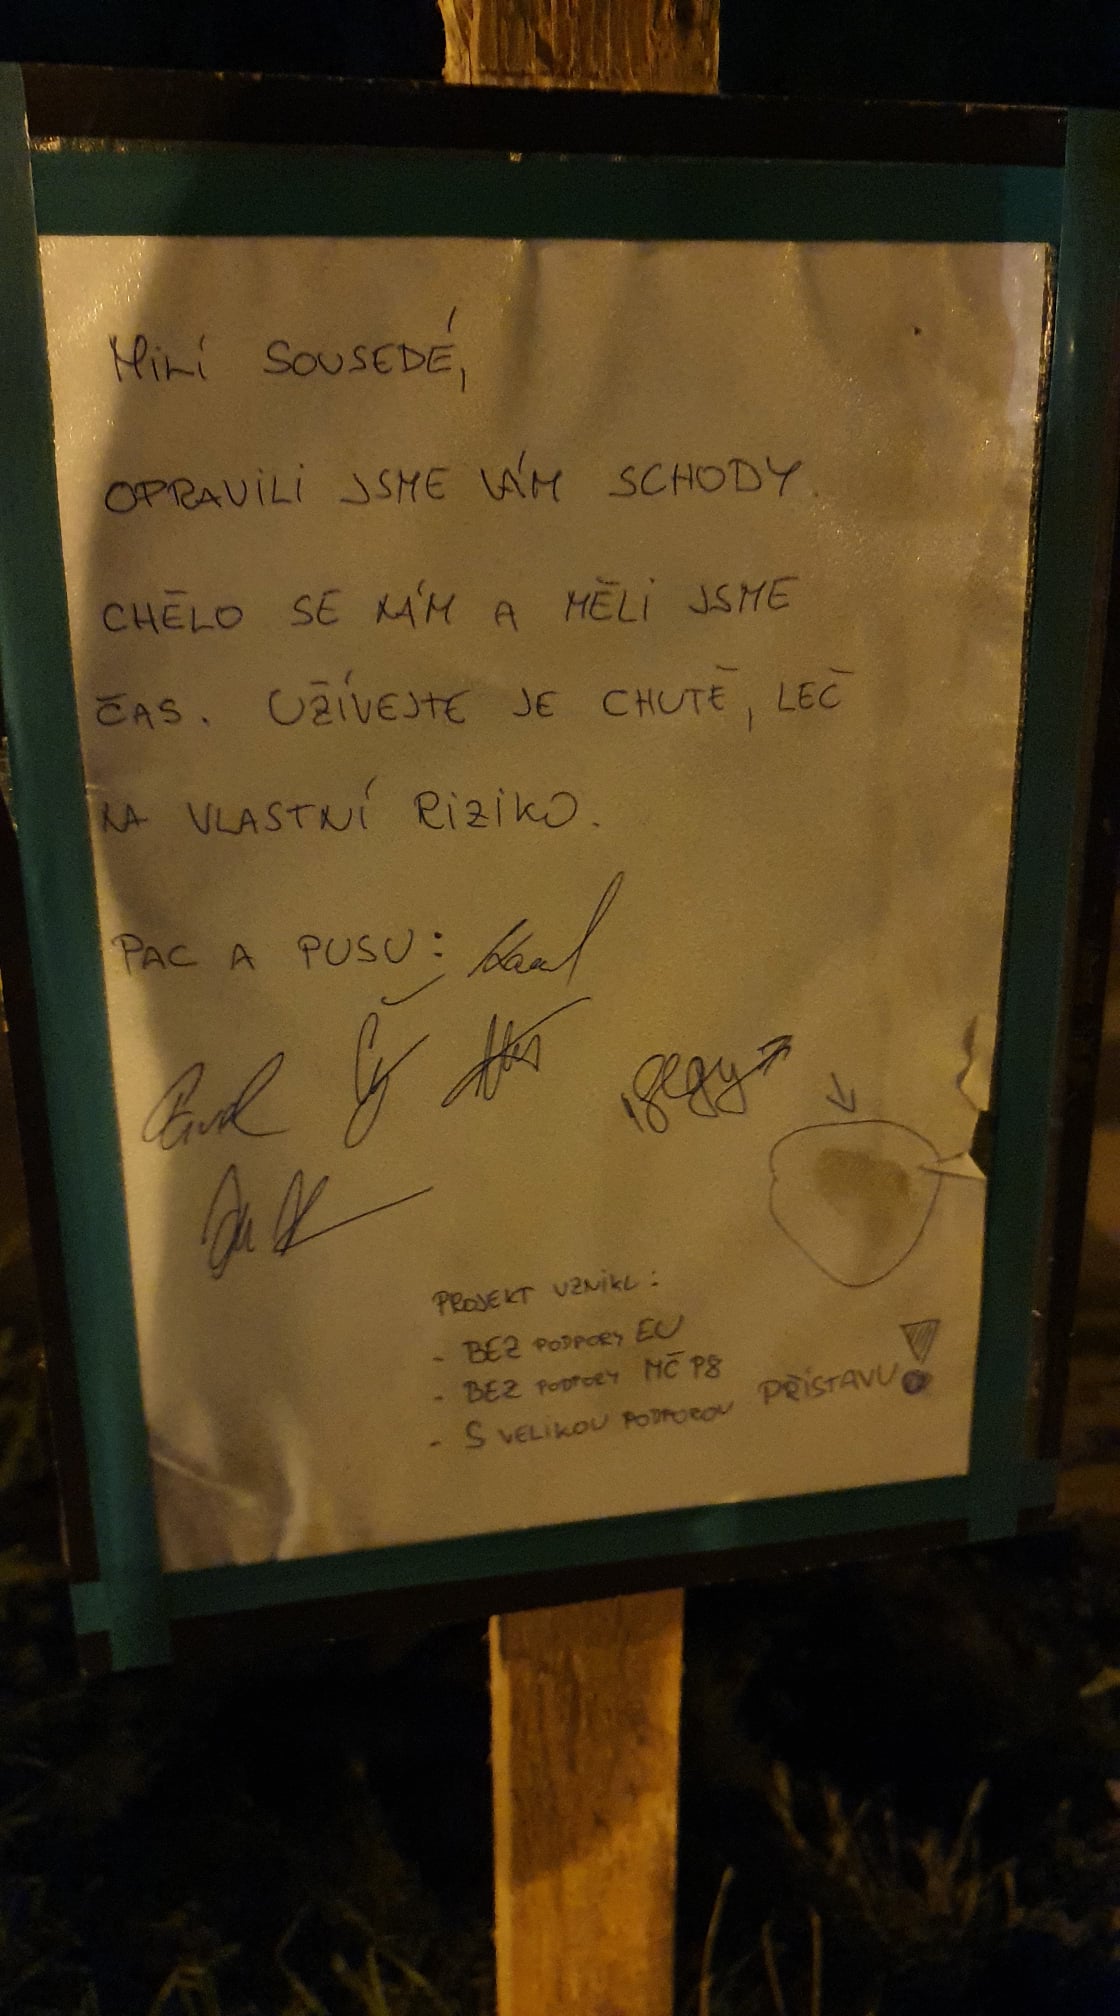 MILÍ SOUSEDÉ,
OPRAVILI JSME VÁM SCHODY.
CHĚLO SE NÁM A MĚLI JSME
ČAS. UŽÍVEJTE JE CHUTĚ, LEČ
NA VLASTNÍ RIZIKO.
PAC A PUSU: Karel
Pavel
PROJEKT VZNIKL:
- BEZ PODPORY EU
- BEZ PODPORY MČ P8
- S VELIKOU PODPOROU PŘÍSTAVU!